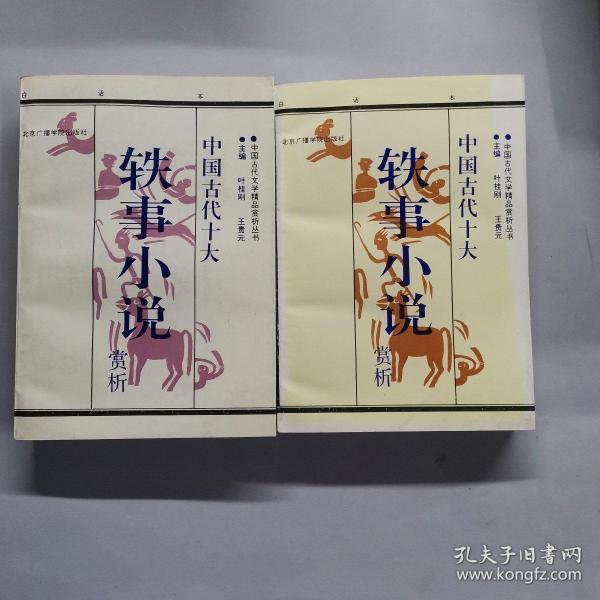 白话本
北京广播学院出版社
●中国古代文学精品赏析丛书
●主编 叶桂刚 王贵元
中国古代十大
轶事小说
赏析
白话本
北京广播学院出版社
●中国古代文学精品赏析丛书
●主编 叶桂刚 王贵元
中国古代十大
轶事小说
赏析
孔夫子旧书网
www.kongfz.com